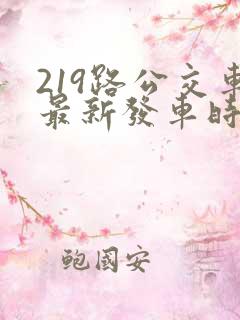 219路公交車
最新發車時
鮑國安